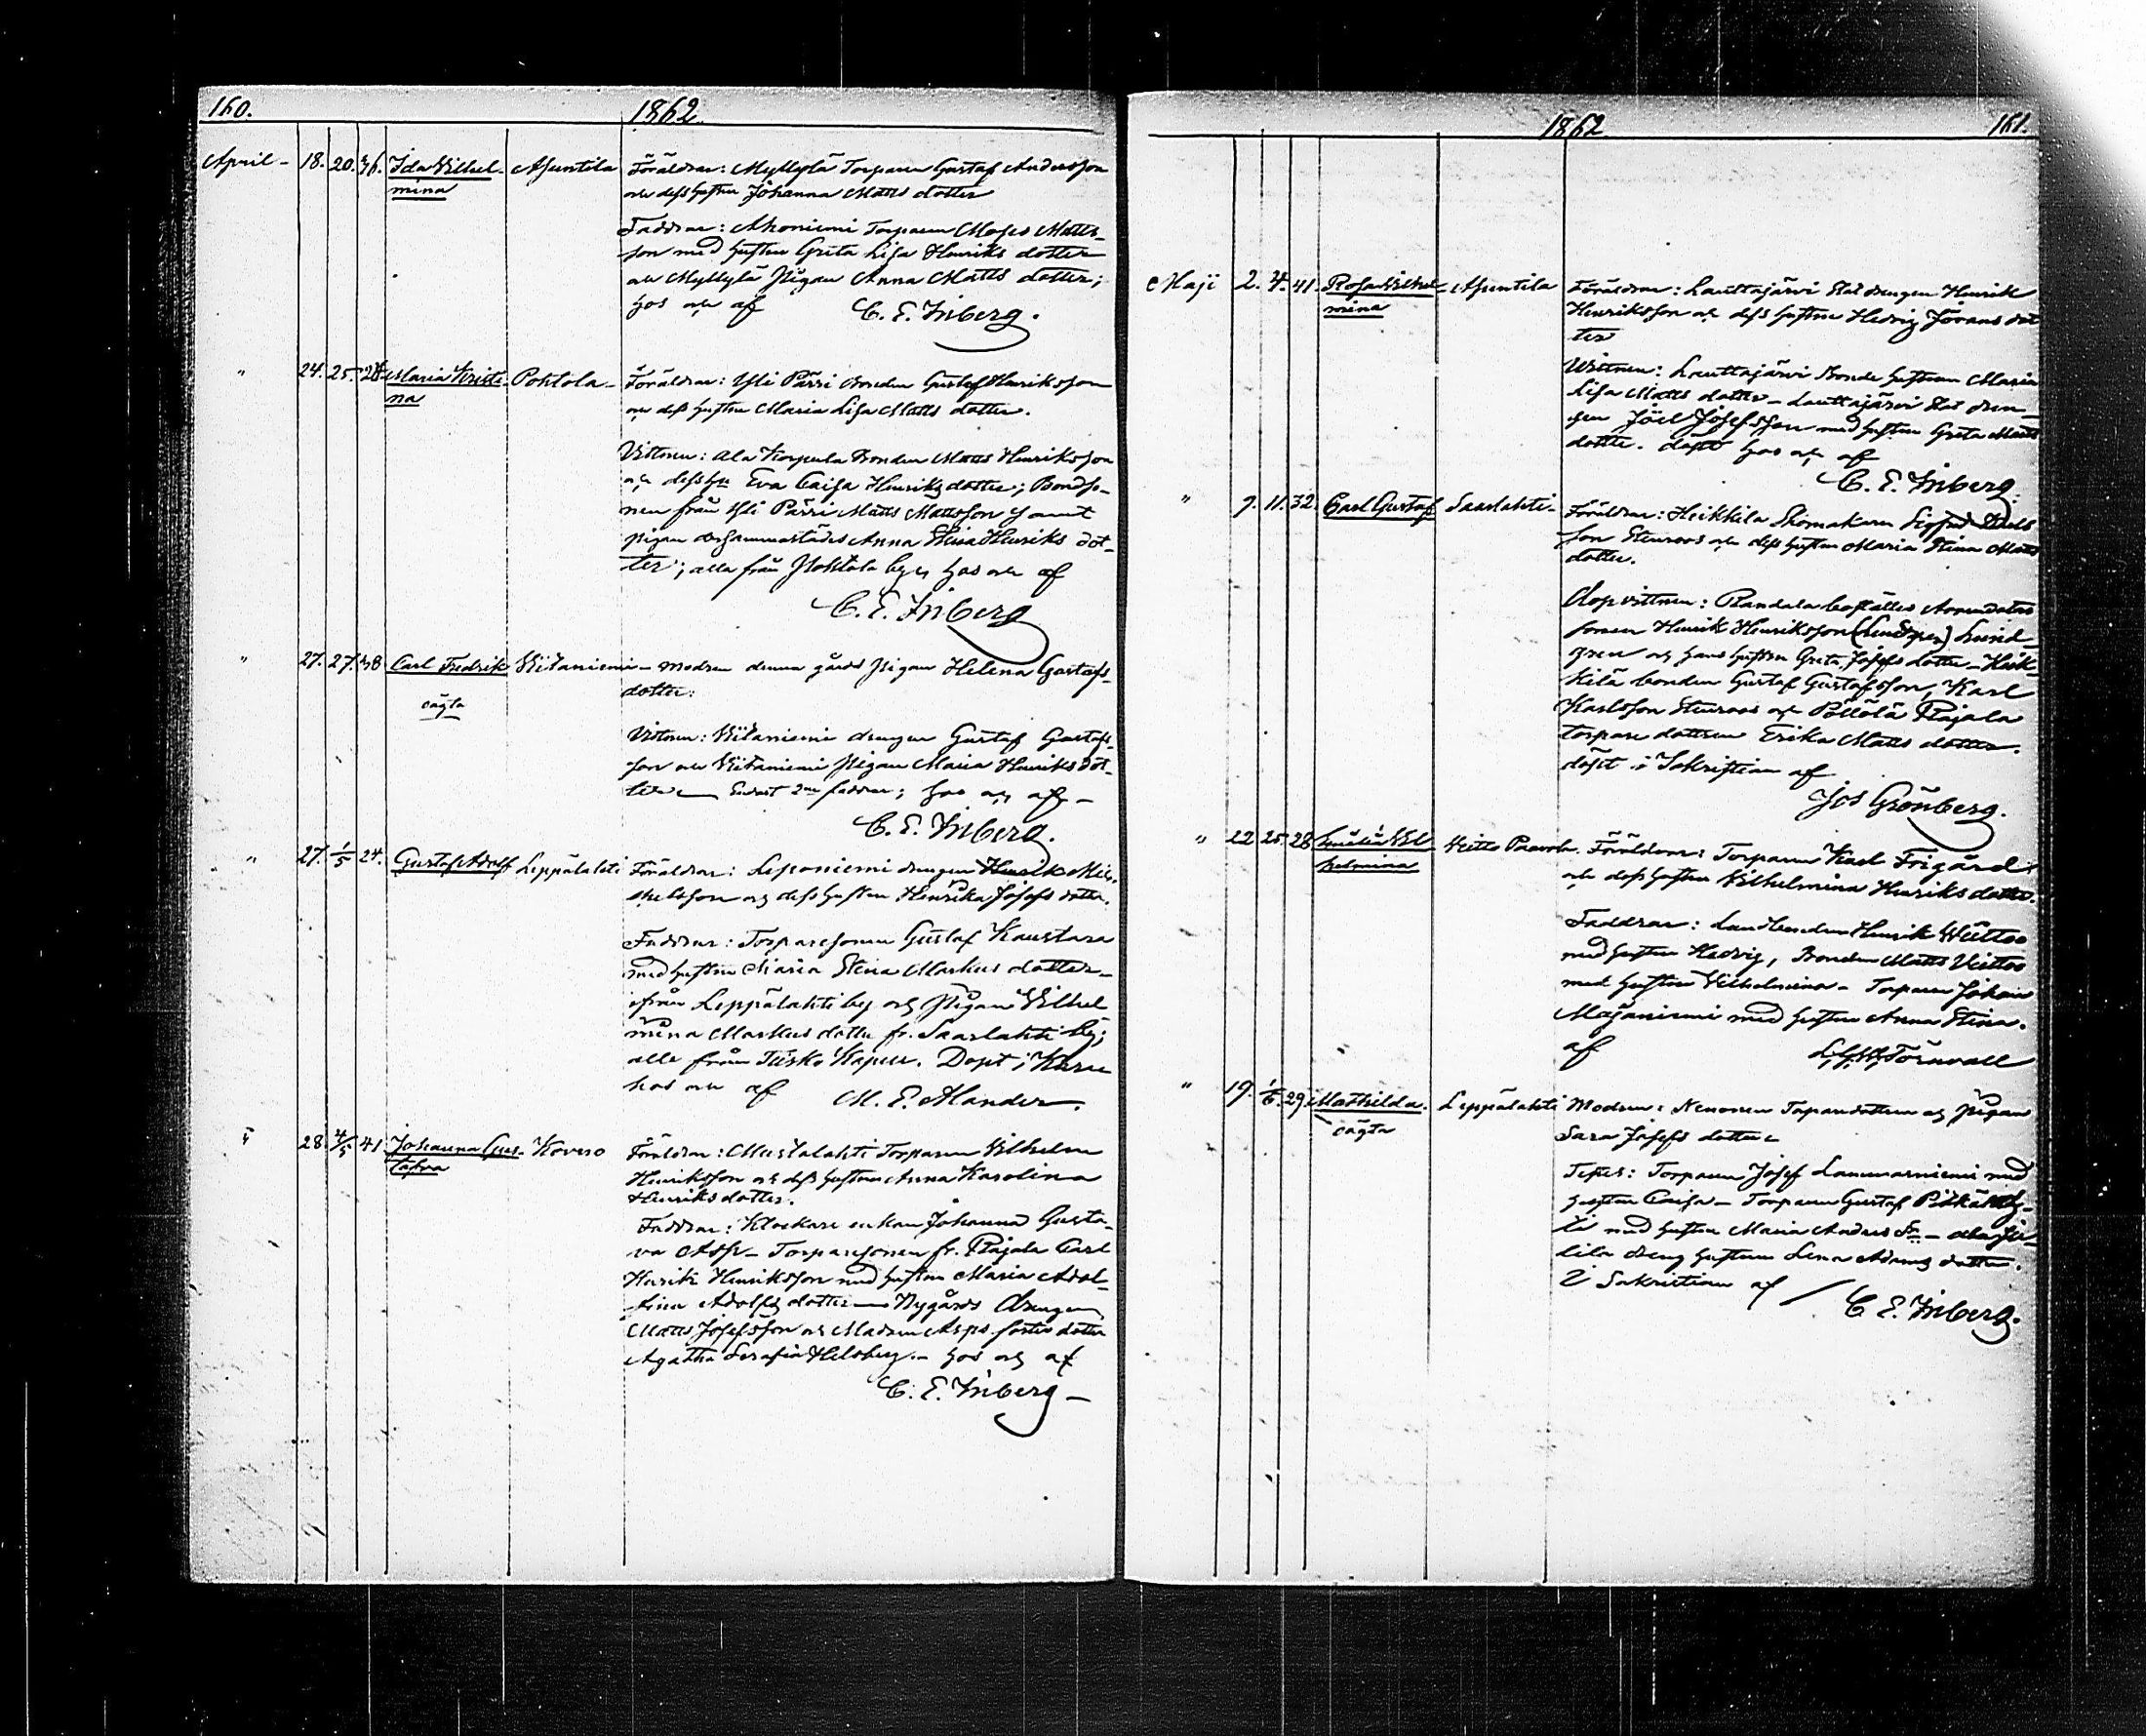 160.
1862.
April – 18. 20. 36. Ida Wilhel- Asuntila Föräldrar: Myllylä Torparen Gustaf Andersson
mina och dess hustru Johanna Matts dotter
Faddrar: Ahoniemi Torparen Moses Matts-
son med hustru Greta Lisa Henriks dotter
och Myllylä Pigan Anna Matts dotter;
hos och af C. E. Inberg.
" 24. 25. 28. Maria Kristi- Pohtola – Föräldrar: Yli Pärri Bonden Gustaf Henriksson
na och dess hustru Maria Lisa Matts dotter.
Vittnen: Ala Korpula Bonden Matts Henriksson
och dess hu Eva Caisa Henriks dotter; Bondso-
nen från Yli Pärri Matts Mattsson samt
pigan dersammastädes Anna Stina Henriks dot-
ter; alla från Pohtola by, hos och af
C. E. Inberg
" 27. 27. 48 Carl Fredrik Wiitaniemi – modren denna gårds pigan Helena Gustafs-
oägta dotter.
Vittnen: Wiitaniemi drengen Gustaf Gustafs-
son och Wiitaniemi Pigan Maria Henriks dot-
ter — Endast 2ne faddrar; hos och af –
C. E. Inberg.
" 27. 1/5 24. Gustaf Adolf Leppälahti Föräldrar: Leponiemi drengen Henrik Mic-
kelsson och dess hustru Henrika Josefs dotter.
Faddrar: Torparesonen Gustaf Kaustara
med hustru Maria Stina Markus dotter –
ifrån Leppälahti by och Pigan Wilhel
mina Markus dotter fr. Saarlahti by;
alla från Teisko Kapell. Döpt i Kuru
hos och af M. E. Alander.
" 28. 4/5 41. Johanna Gus- Kovero Föräldrar: Mustalahti Torparen Wilhelm
tafva Henriksson och dess hustru Anna Karolina
Henriks dotter.
Faddrar: Klockare enkan Johanna Gusta-
va Asp – Torparesonen fr. Rajala Carl
Henrik Henriksson med hustru Maria Adol-
fina Adolfs dotter — Nygårds drengen
Matts Josefsson och Madam Asps foster dotter
Agatha Serafia Helsberg. – hos och af
C. E. Inberg –
1862
161.
Maji 2. 4. 41. Rosa Wilhel- Asuntila Föräldrar: Lauttajärvi Statdrengen Henrik
mina Henriksson och dess hustru Hedvig Jörans dot
ter
Vittnen: Lauttajärvi Bonde hustrun Maria
Lisa Matts dotter – Lauttajärvi Stat dren-
gen Joel Josefsson med hustru Greta Matts
dotter. döpt hos och af
C. E. Inberg.
" 9. 11. 32. Carl Gustaf Saarlahti – Föräldrar: Heikkilä Skomakaren Sigfrid
son Stenroos och dess hustru Maria Stina Matts
dotter.
Dopvittnen: Randala boställes Arrendators
sonen Henrik Henriksson (Lindgren) Lund
gren och hans hustru Greta Josefs dotter – Heik
kilä bonden Gustaf Gustafsson, Karl
Karlsson Stenroos och Pöllölä Rajala
torpare dottren Erika Matts dotter.
döpt i Sakristian af
Jos Grönberg.
" 22 25. 28 Amalia Wil Wiitto Paavola. Föräldrar: Torparen Karl Frigård
helmina och dess hustru Wilhelmina Henriks dotter.
Faddrar: Landbonden Henrik Wiittoo
med hustru Hedvig, Bonden Matts Wiittoo
med hustru Wilhelmina – Torparen Johan
Majaniemi med hustru Anna Stina.
af Törnvall
" 19. 1/6. 29. Mathilda. Leppälahti Modren: Nenonen Torparedottren och pigan
oägta Sara Josefs dotter
Testes: Torparen Josef Lammasniemi med
hustru Caisa – Torparen Gustaf Pitkälah-
ti med hustru Maria Anders dr – 
 dreng hustrun Lena Adams dotter.
i Sakristian af C. E. Inberg.